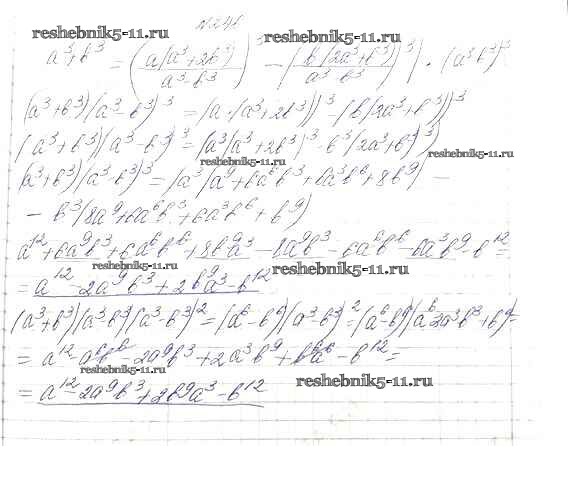 N 241
reshebnik5-11.ru reshebnik5-11.ru
a³+b³ = (a(a³+2b³)/(a³-b³))³ - (b(2a³+b³)/(a³-b³))³ | · (a³-b³)³
(a³+b³)(a³-b³)³ = (a·(a³+2b³))³ - (b(2a³+b³))³
(a³+b³)(a³-b³)³ = (a³(a³+2b³)³ - b³(2a³+b³)³)
reshebnik5-11.ru reshebnik5-11.ru
(a³+b³)(a³-b³)³ = (a³(a⁹+6a⁶b³+6a³b⁶+8b⁹) -
- b³(8a⁹+6a⁶b³+6a³b⁶+b⁹)
a¹²+6a⁹b³+6a⁶b⁶+8b⁹a³-8a⁹b³-6a⁶b⁶-6a³b⁹-b¹² =
reshebnik5-11.ru reshebnik5-11.ru
= a¹²-2a⁹b³+2b⁹a³-b¹²
(a³+b³)(a³-b³)(a³-b³)² = (a⁶-b⁶)(a³-b³)² = (a⁶-b⁶)(a⁶-2a³b³+b⁶) =
= a¹²-a⁶b⁶-2a⁹b³+2a³b⁹+b⁶a⁶-b¹² =
= a¹²-2a⁹b³+2b⁹a³-b¹²
reshebnik5-11.ru